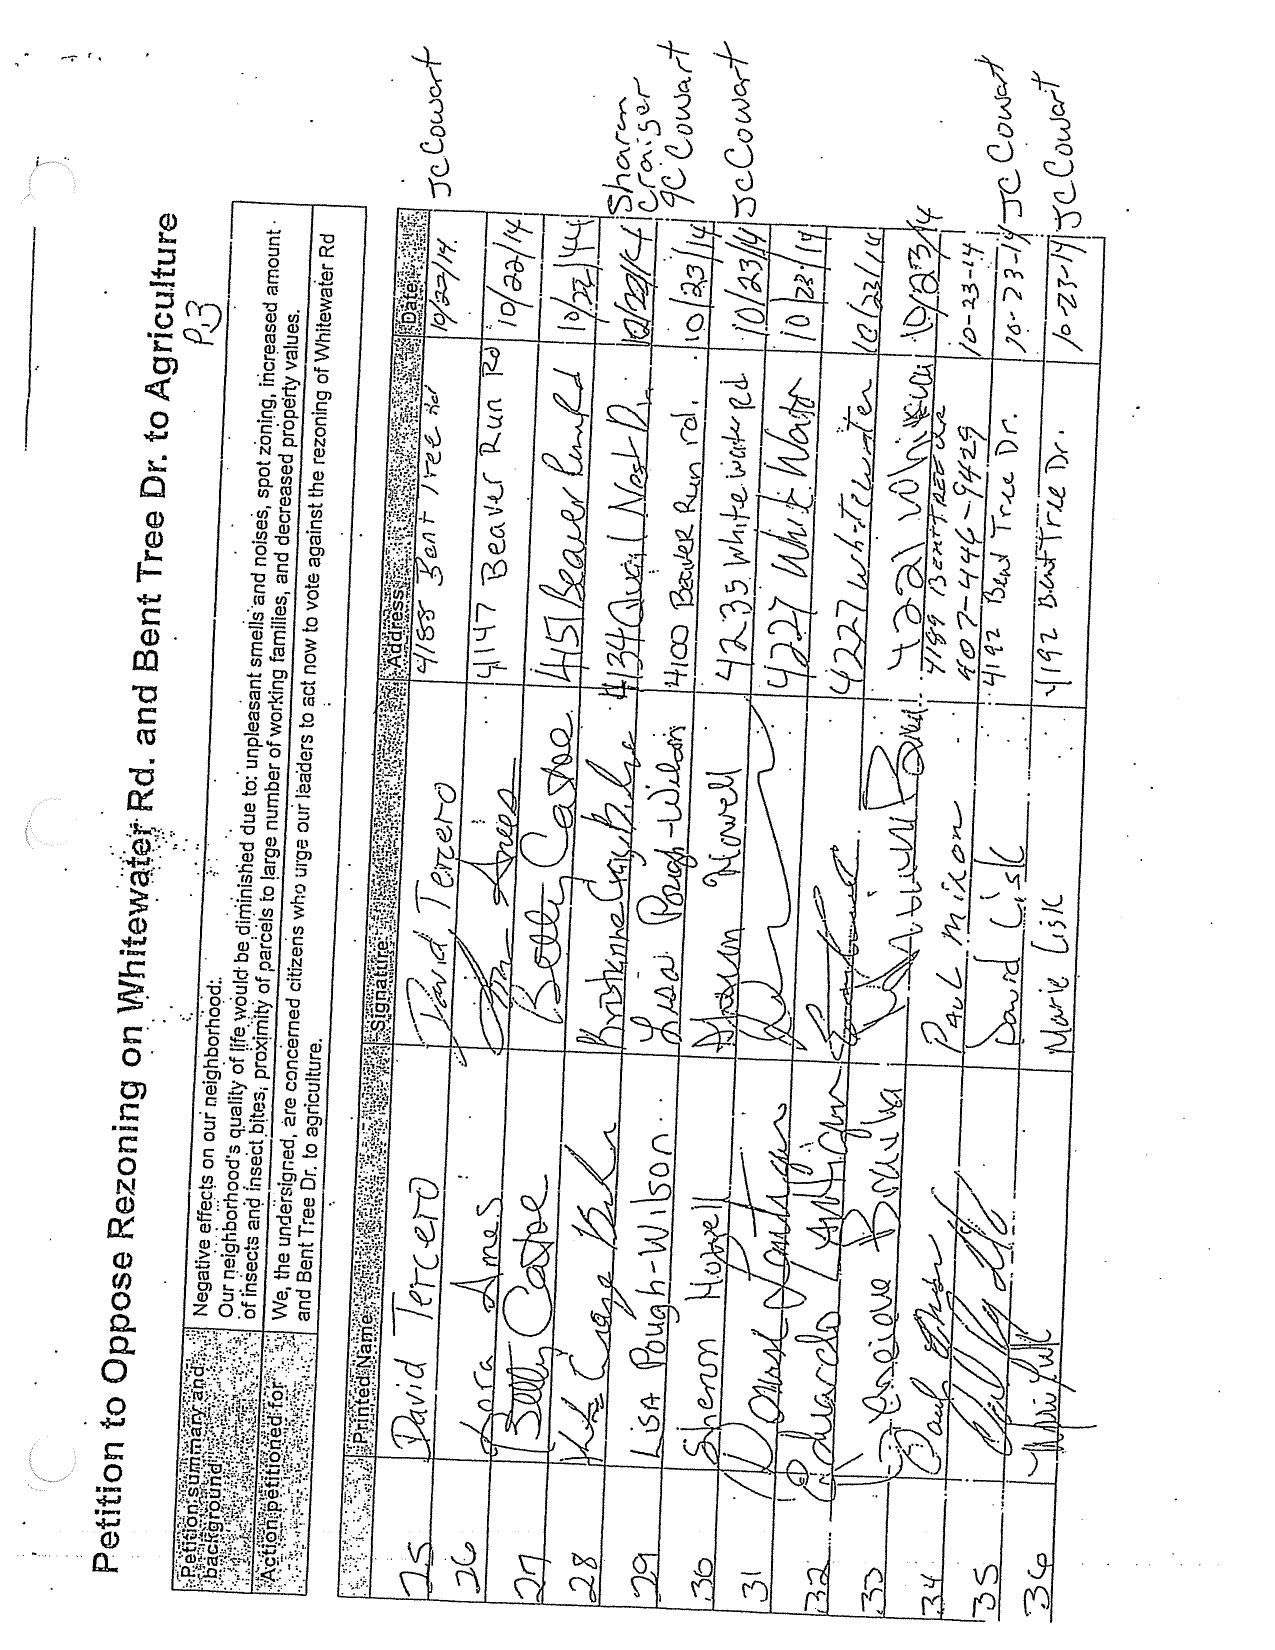 Petition to Oppose Rezoning on Whitewater Rd. and Bent Tree Dr. to Agriculture
P.3
Petition summary and background
Negative effects on our neighborhood:
Our neighborhood's quality of life would be diminished due to: unpleasant smells and noises, spot zoning, increased amount
of insects and insect bites, proximity of parcels to large number of working families, and decreased property values.
Action petitioned for
We, the undersigned, are concerned citizens who urge our leaders to act now to vote against the rezoning of Whitewater Rd
and Bent Tree Dr. to agriculture.
Printed Name Signature Address Date
25 David Tercero David Tercero 4188 Bent Tree Rd 10/22/14 JC Cowart
26 Ames Ames 4147 Beaver Run Rd 10/22/14
27 Betty Castoe Betty Castoe 4151 Beaver Run Rd 10/22/14
28 4134 Quail Nest 10/22/14 Sharon Craiger
29 Lisa Pough-Wilson Lisa Pough-Wilson 4100 Beaver Run rd. 10/23/14 JC Cowart
30 Sharon Howell Sharon Howell 4235 Whitewater Rd 10/23/14 JC Cowart
31 4227 White Water 10/23/14
32 Eduardo 4227 Whitewater 10/23/14
33 4221 10/23/14
34 Paul Mixon 4189 Bent Tree 10-23-14
407-446-9429
35 David Lisk 4192 Bent Tree Dr. 10-23-14 JC Cowart
36 Marie Lisk 4192 Bent Tree Dr. 10-23-14 JC Cowart